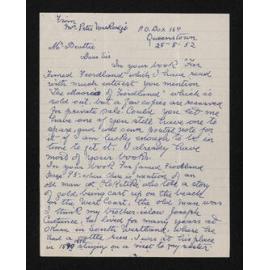 From
Mr Peter
P.O. Box 164
Queenstown
25-8-52
Mr Beattie
Dear Sir
In your book "Far
Famed Fiordland" which I have read
with much interest you mention
The Maories of Fiordland which is
sold out but a few copies are reserved
for private sale. Could you let me
have one if you still have one to
spare, and will send postal note for
it if I am lucky enough to be in
time to get it. I already have
most of your books.
In your book Far famed Fiordland
page 78 where there is mention of an
old man at Hokitika who told a story
of gold being cast up on the beach
on the West Coast, the old man was
I think my brother-in-law Joseph
he lived for many years at
in South Westland where he
had a I was at his place
in staying on a visit to my sister